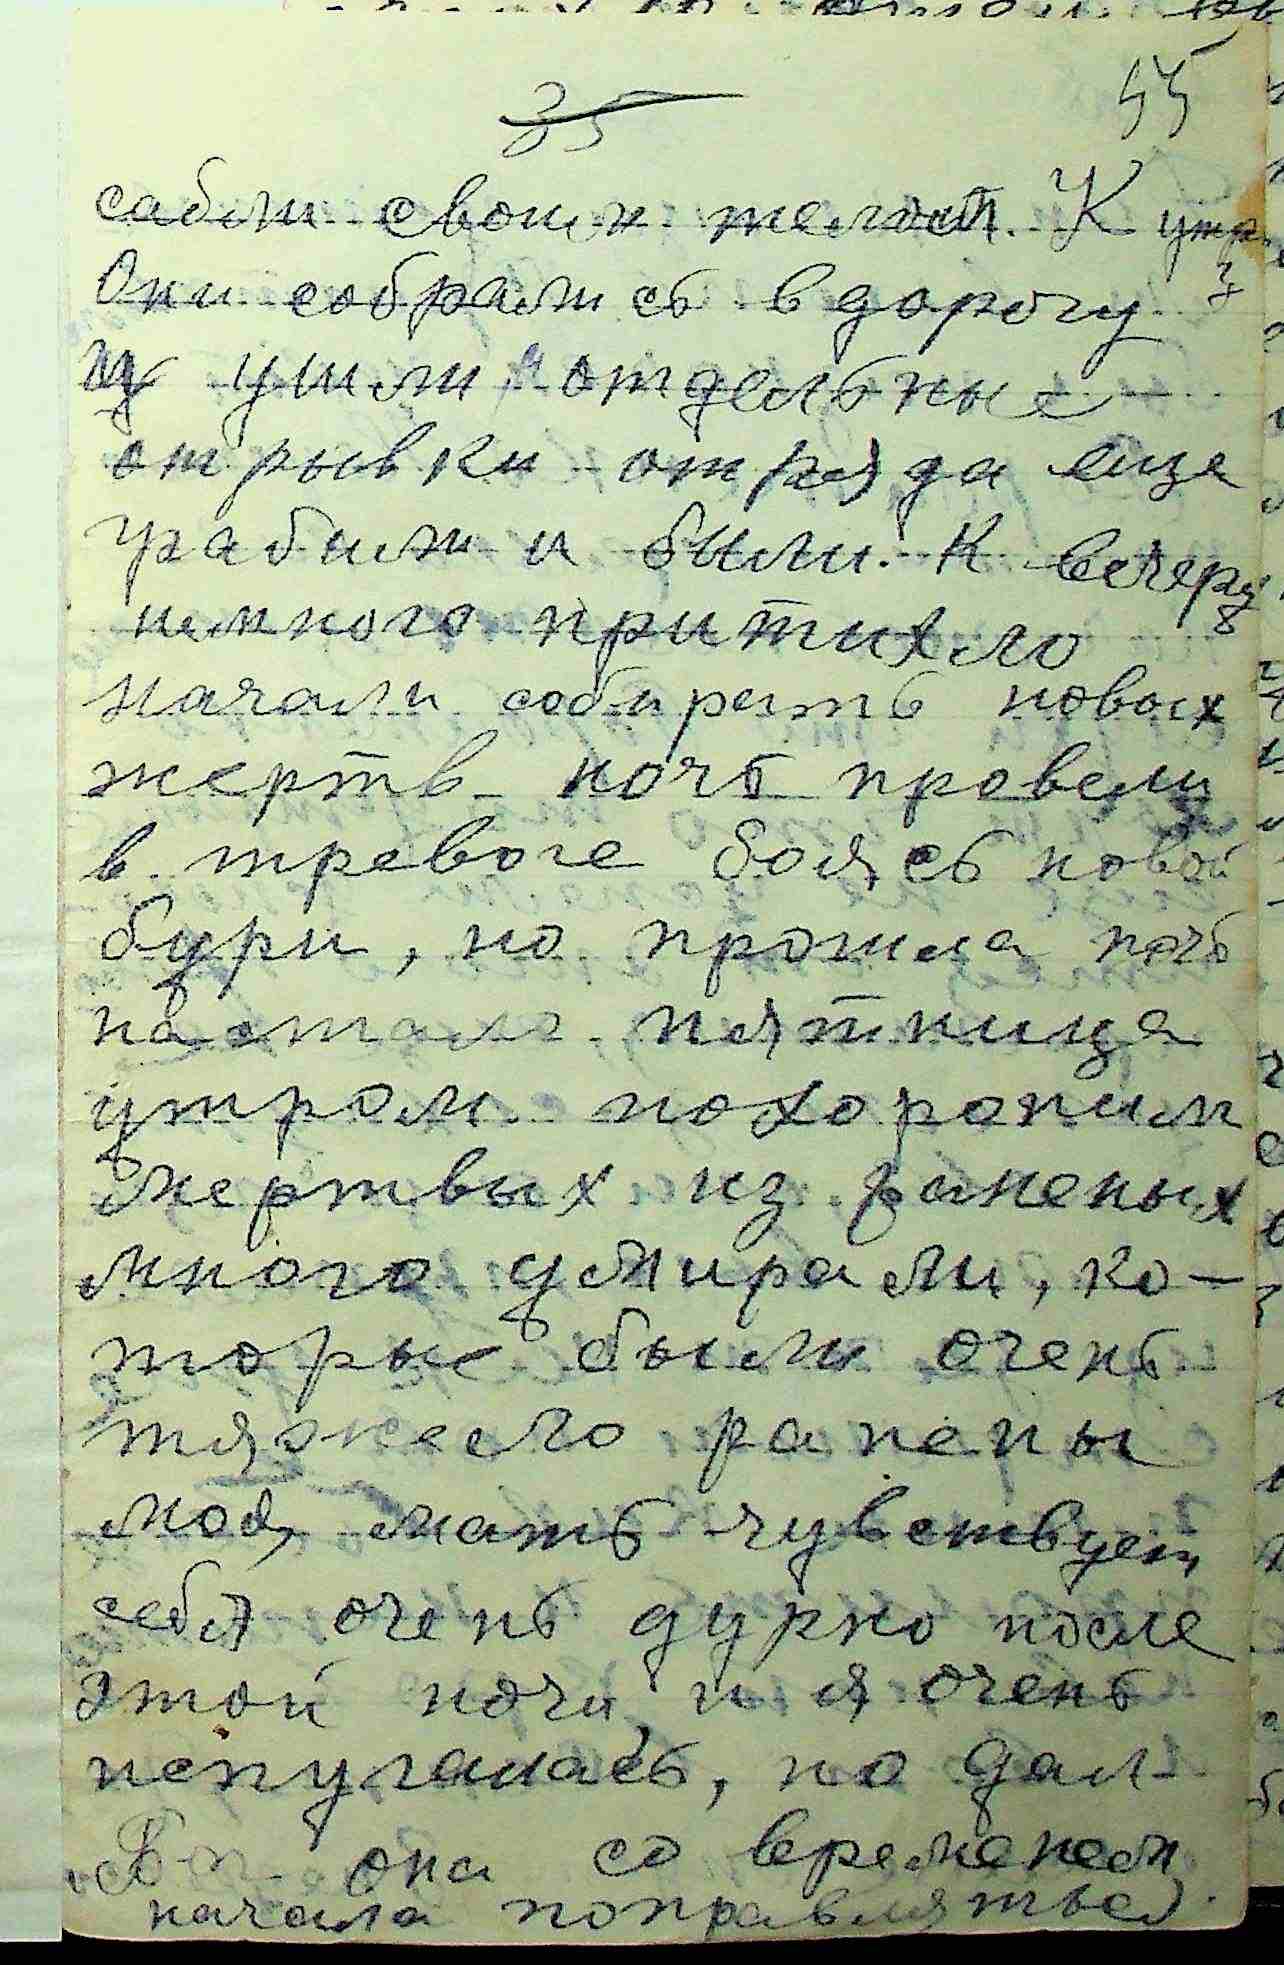 35 55
сабли своих К утру
Они собрались в дорогу
и ушли отдельные
отрывки отряда еще
грабили и били. К вечеру
немного притихло
начали собирать новых
жертв ночь провели
в тревоге боясь новой
бури, но прошла ночь
настала пятница
утром похоронили
мертвых из раненых
много умирали, ко-
торые были очень
тяжело ранены
моя мать чувствует
себя очень дурно после
этой ночи, и я очень
испугалась, но дал
Бог она со временем
начала поправляться.